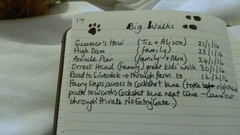 17
Big Walks
Gummer's How (Tiz + Alison) 21/1/16
High Dam (family) 23/1/16
Arnside Pier (family + Alba) 24/1/16
Orrest Head (family) great kids walk 31/1/16
Road to Silverdale → through farm to 12/2/16
Fairy Steps across to Cockshot lane (took right
path towards Cockshot lane next time - came out
through Private No Entry Gate!)